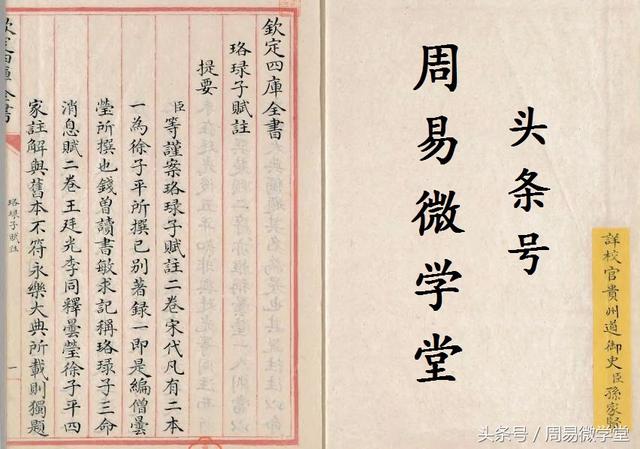 詳校官貴州道御史臣孫家賢
头条号
周易微学堂
欽定四庫全書
珞琭子賦註
提要
臣等謹案珞琭子賦註二卷宋代凡有二本
一為徐子平所撰已别著錄一即是編僧曇
瑩所撰也錢曾讀書敏求記稱珞琭子三命
消息賦二卷王廷光李同釋曇瑩徐子平四
家註解與舊本不符永樂大典所載則獨題
欽定四庫全書
珞琭子賦註
一
头条号 / 周易微学堂